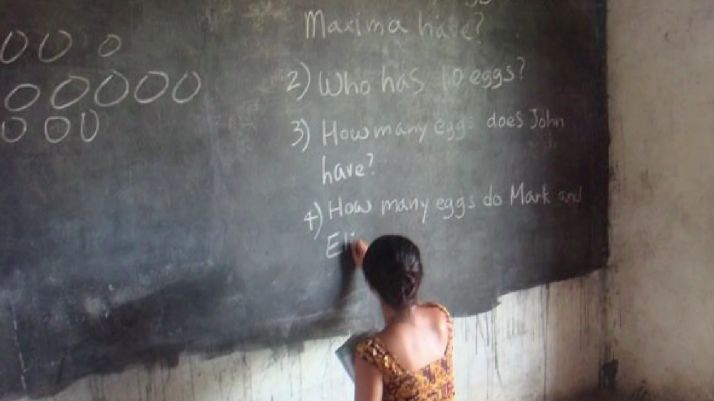 Maxima have?
2) Who has 10 eggs?
3) How many eggs does John
have?
4) How many eggs do Mark and
Eli